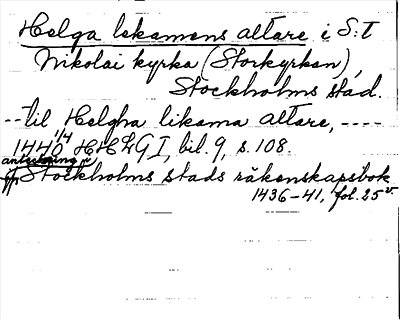 Helga lekamens altare i S:t
Nikolai kyrka (Storkyrkan),
Stockholms stad.
-- til Helgha likama altare, ----
1440 1/4 HH & G I, bil. 9, s. 108.
anteckning i
Stockholms stads räkenskapsbok
1436-41, fol. 25 v.